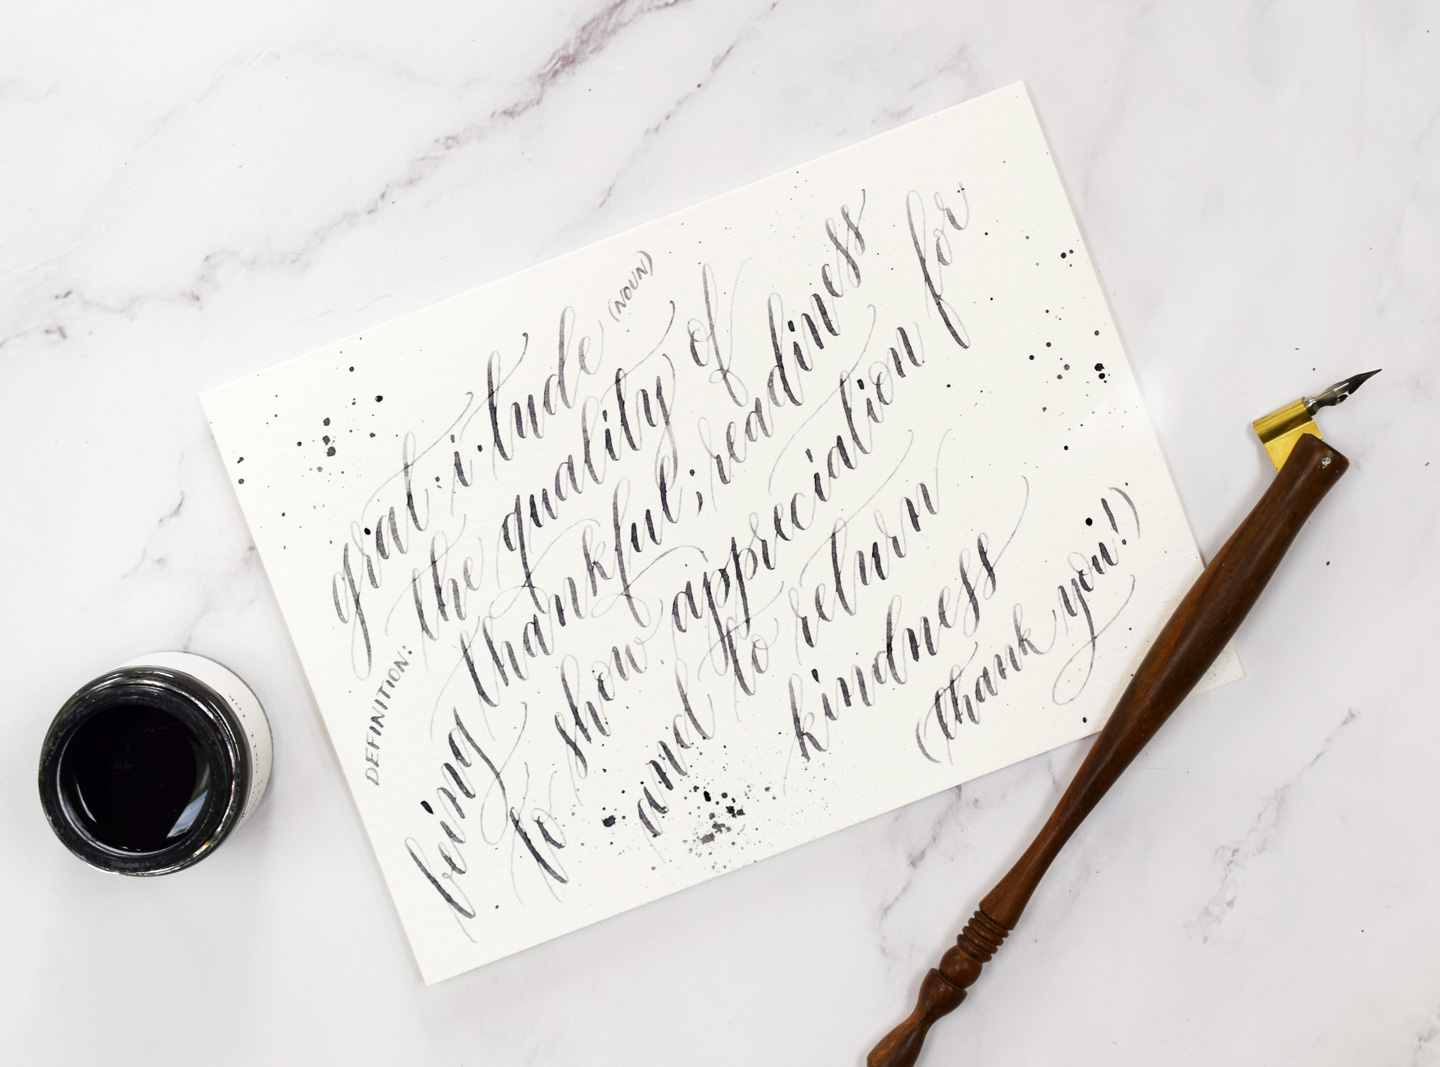 grat·i·tude (NOUN)
DEFINITION: the quality of
being thankful; readiness
to show appreciation for
and to return
kindness
(thank you!)